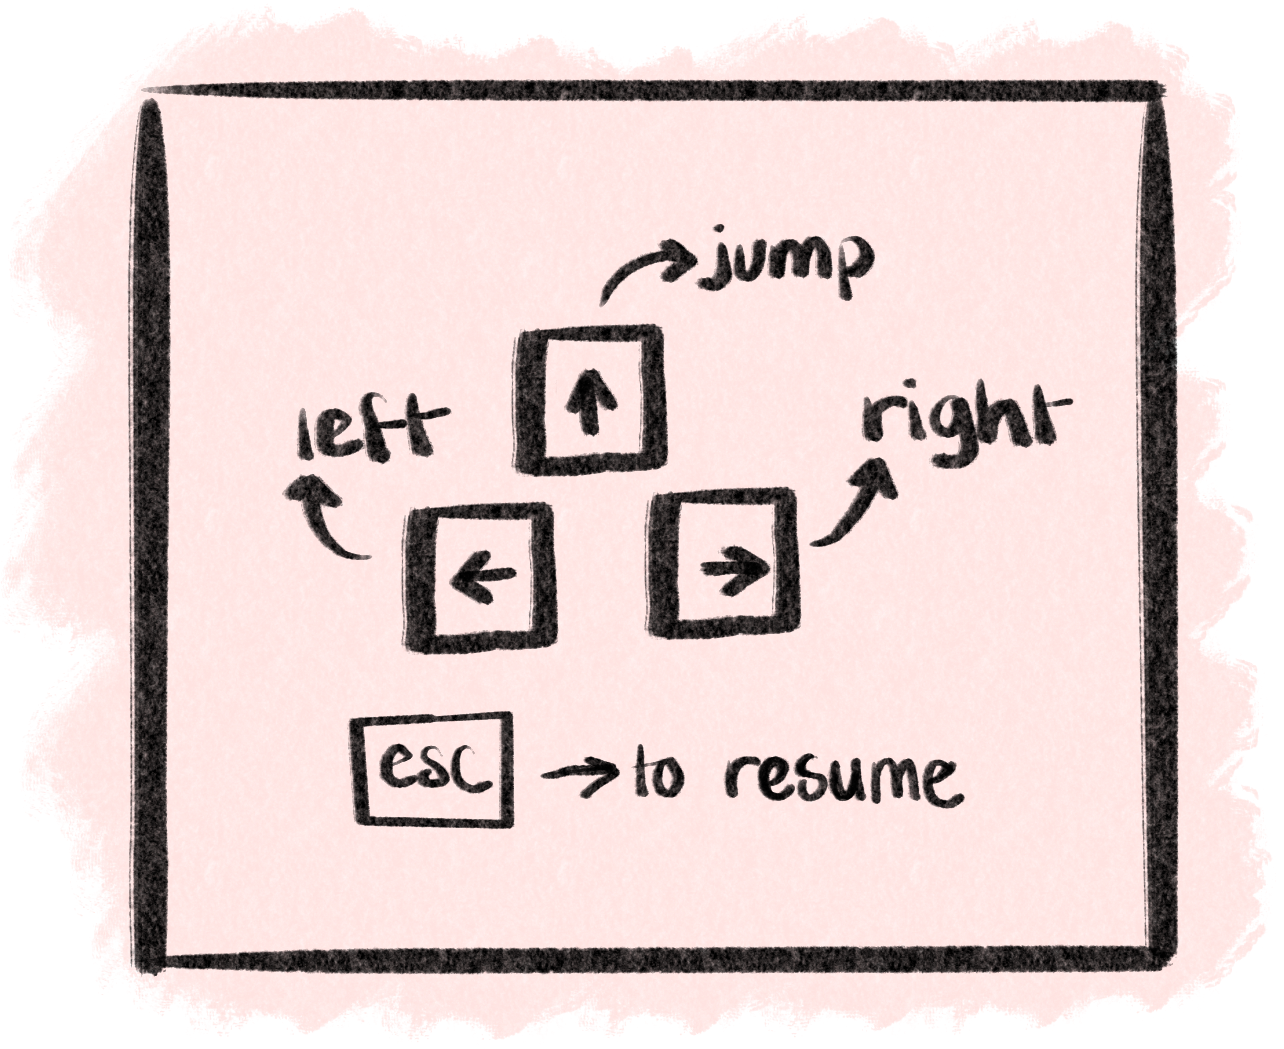 jump
left
right
esc
to resume